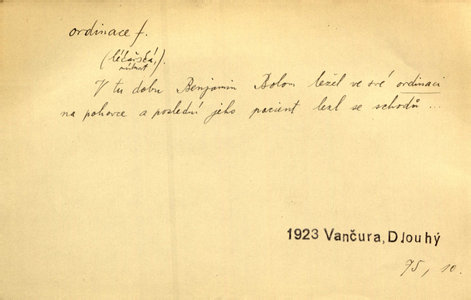 ordinace f.
(lékařská
místnost).
V tu dobu Benjamin Bolom ležel ve své ordinaci
na pohovce a poslední jeho pacient bral se schodů ...
1923 Vančura, Dlouhý
95, 10.